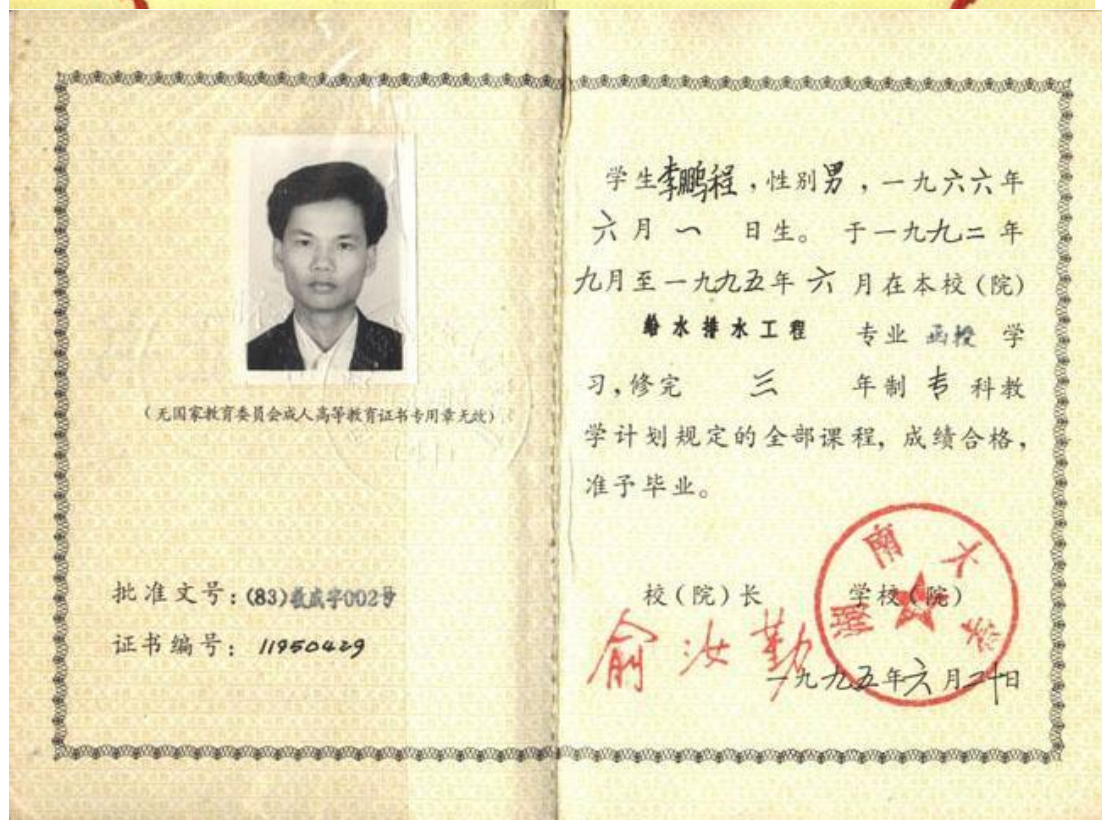 (无国家教育委员会成人高等教育证书专用章无效)
批准文号:(83)教成字002号
证书编号: 11950429
学生李鹏程,性别男,一九六六年
六月一 日生。于一九九二年
九月至一九九五年六月在本校(院)
给水排水工程 专业 函授 学
习,修完 三 年制 专 科教
学计划规定的全部课程, 成绩合格,
准予毕业。
校(院)长 学校(院)
俞汝勤
湖南大学
一九九五年六月二十日